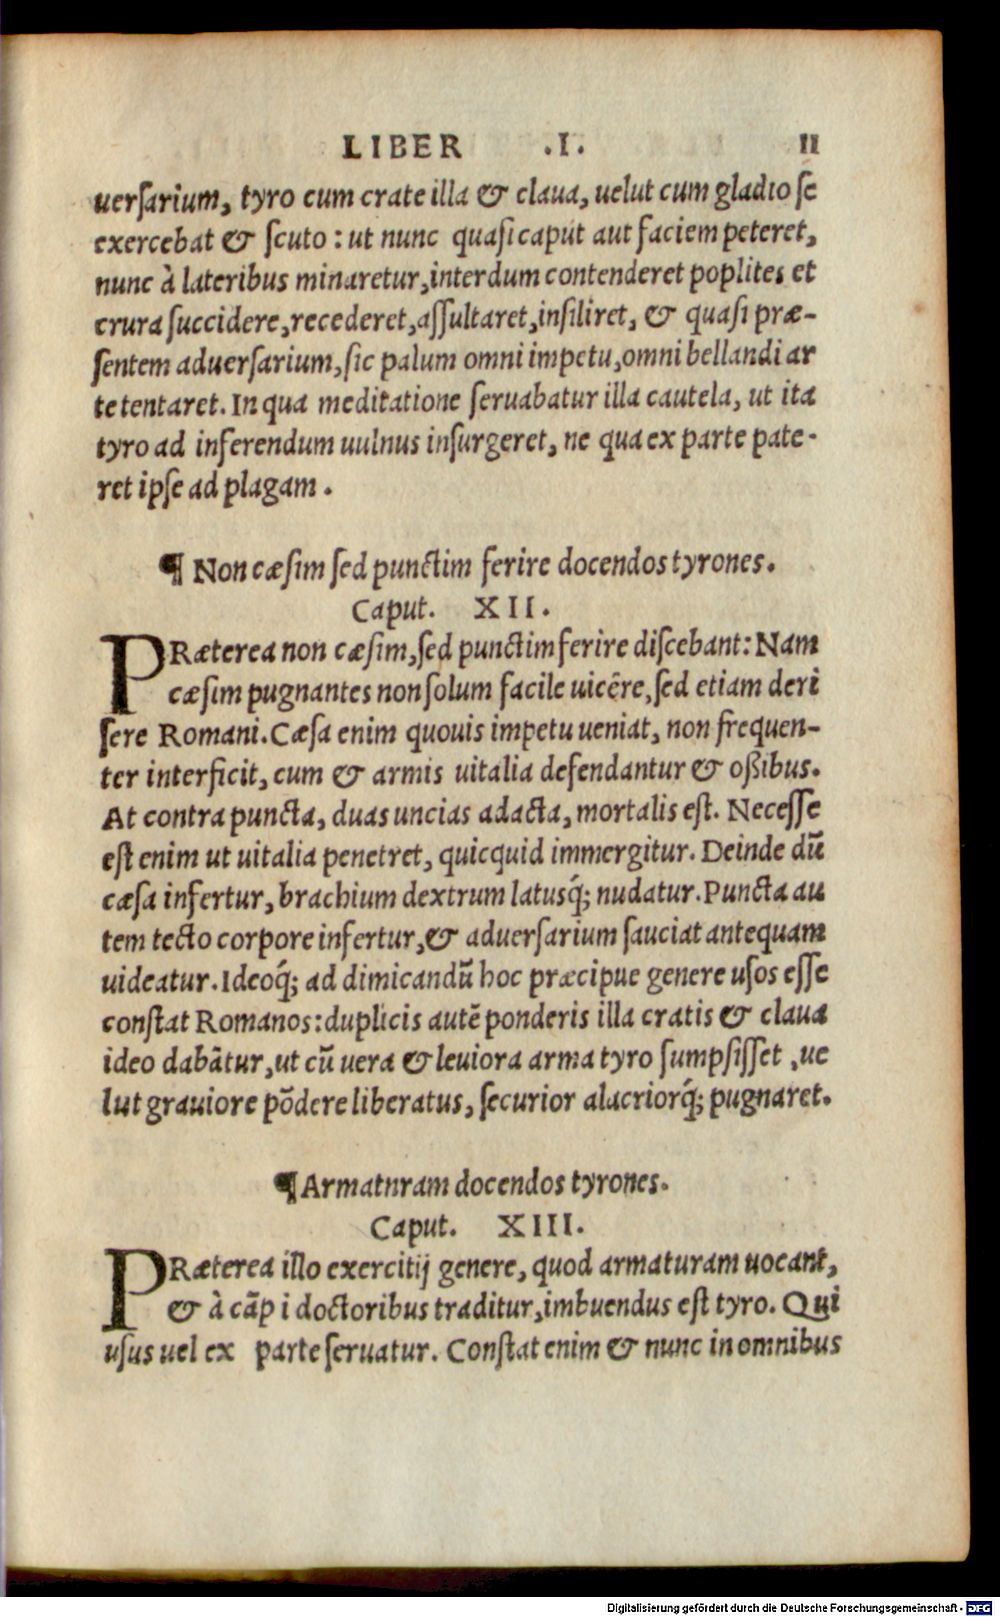 LIBER .I. 11
uersarium, tyro cum crate illa & claua, uelut cum gladio se
exercebat & scuto: ut nunc quasi caput aut faciem peteret,
nunc à lateribus minaretur, interdum contenderet poplites et
crura succidere, recederet, assultaret, insiliret, & quasi præ-
sentem aduersarium, sic palum omni impetu, omni bellandi ar
te tentaret. In qua meditatione seruabatur illa cautela, ut ita
tyro ad inferendum uulnus insurgeret, ne qua ex parte pate-
ret ipse ad plagam.
¶ Non cæsim sed punctim ferire docendos tyrones.
Caput. XII.
PRæterea non cæsim, sed punctim ferire discebant: Nam
cæsim pugnantes non solum facile uicēre, sed etiam deri
sere Romani. Cæsa enim quouis impetu ueniat, non frequen-
ter interficit, cum & armis uitalia defendantur & oßibus.
At contra puncta, duas uncias adacta, mortalis est. Necesse
est enim ut uitalia penetret, quicquid immergitur. Deinde dũ
cæsa infertur, brachium dextrum latusq́; nudatur. Puncta au
tem tecto corpore infertur, & aduersarium sauciat antequam
uideatur. Ideoq́; ad dimicandũ hoc præcipue genere usos esse
constat Romanos: duplicis autē ponderis illa cratis & claua
ideo dabātur, ut cũ uera & leuiora arma tyro sumpsisset, ue
lut grauiore põdere liberatus, securior alacriorq́; pugnaret.
¶ Armatnram docendos tyrones.
Caput. XIII.
PRæterea illo exercitij genere, quod armaturam uocant,
& à cãp i doctoribus traditur, imbuendus est tyro. Qui
usus uel ex parte seruatur. Constat enim & nunc in omnibus
Digitalisierung gefördert durch die Deutsche Forschungsgemeinschaft - DFG